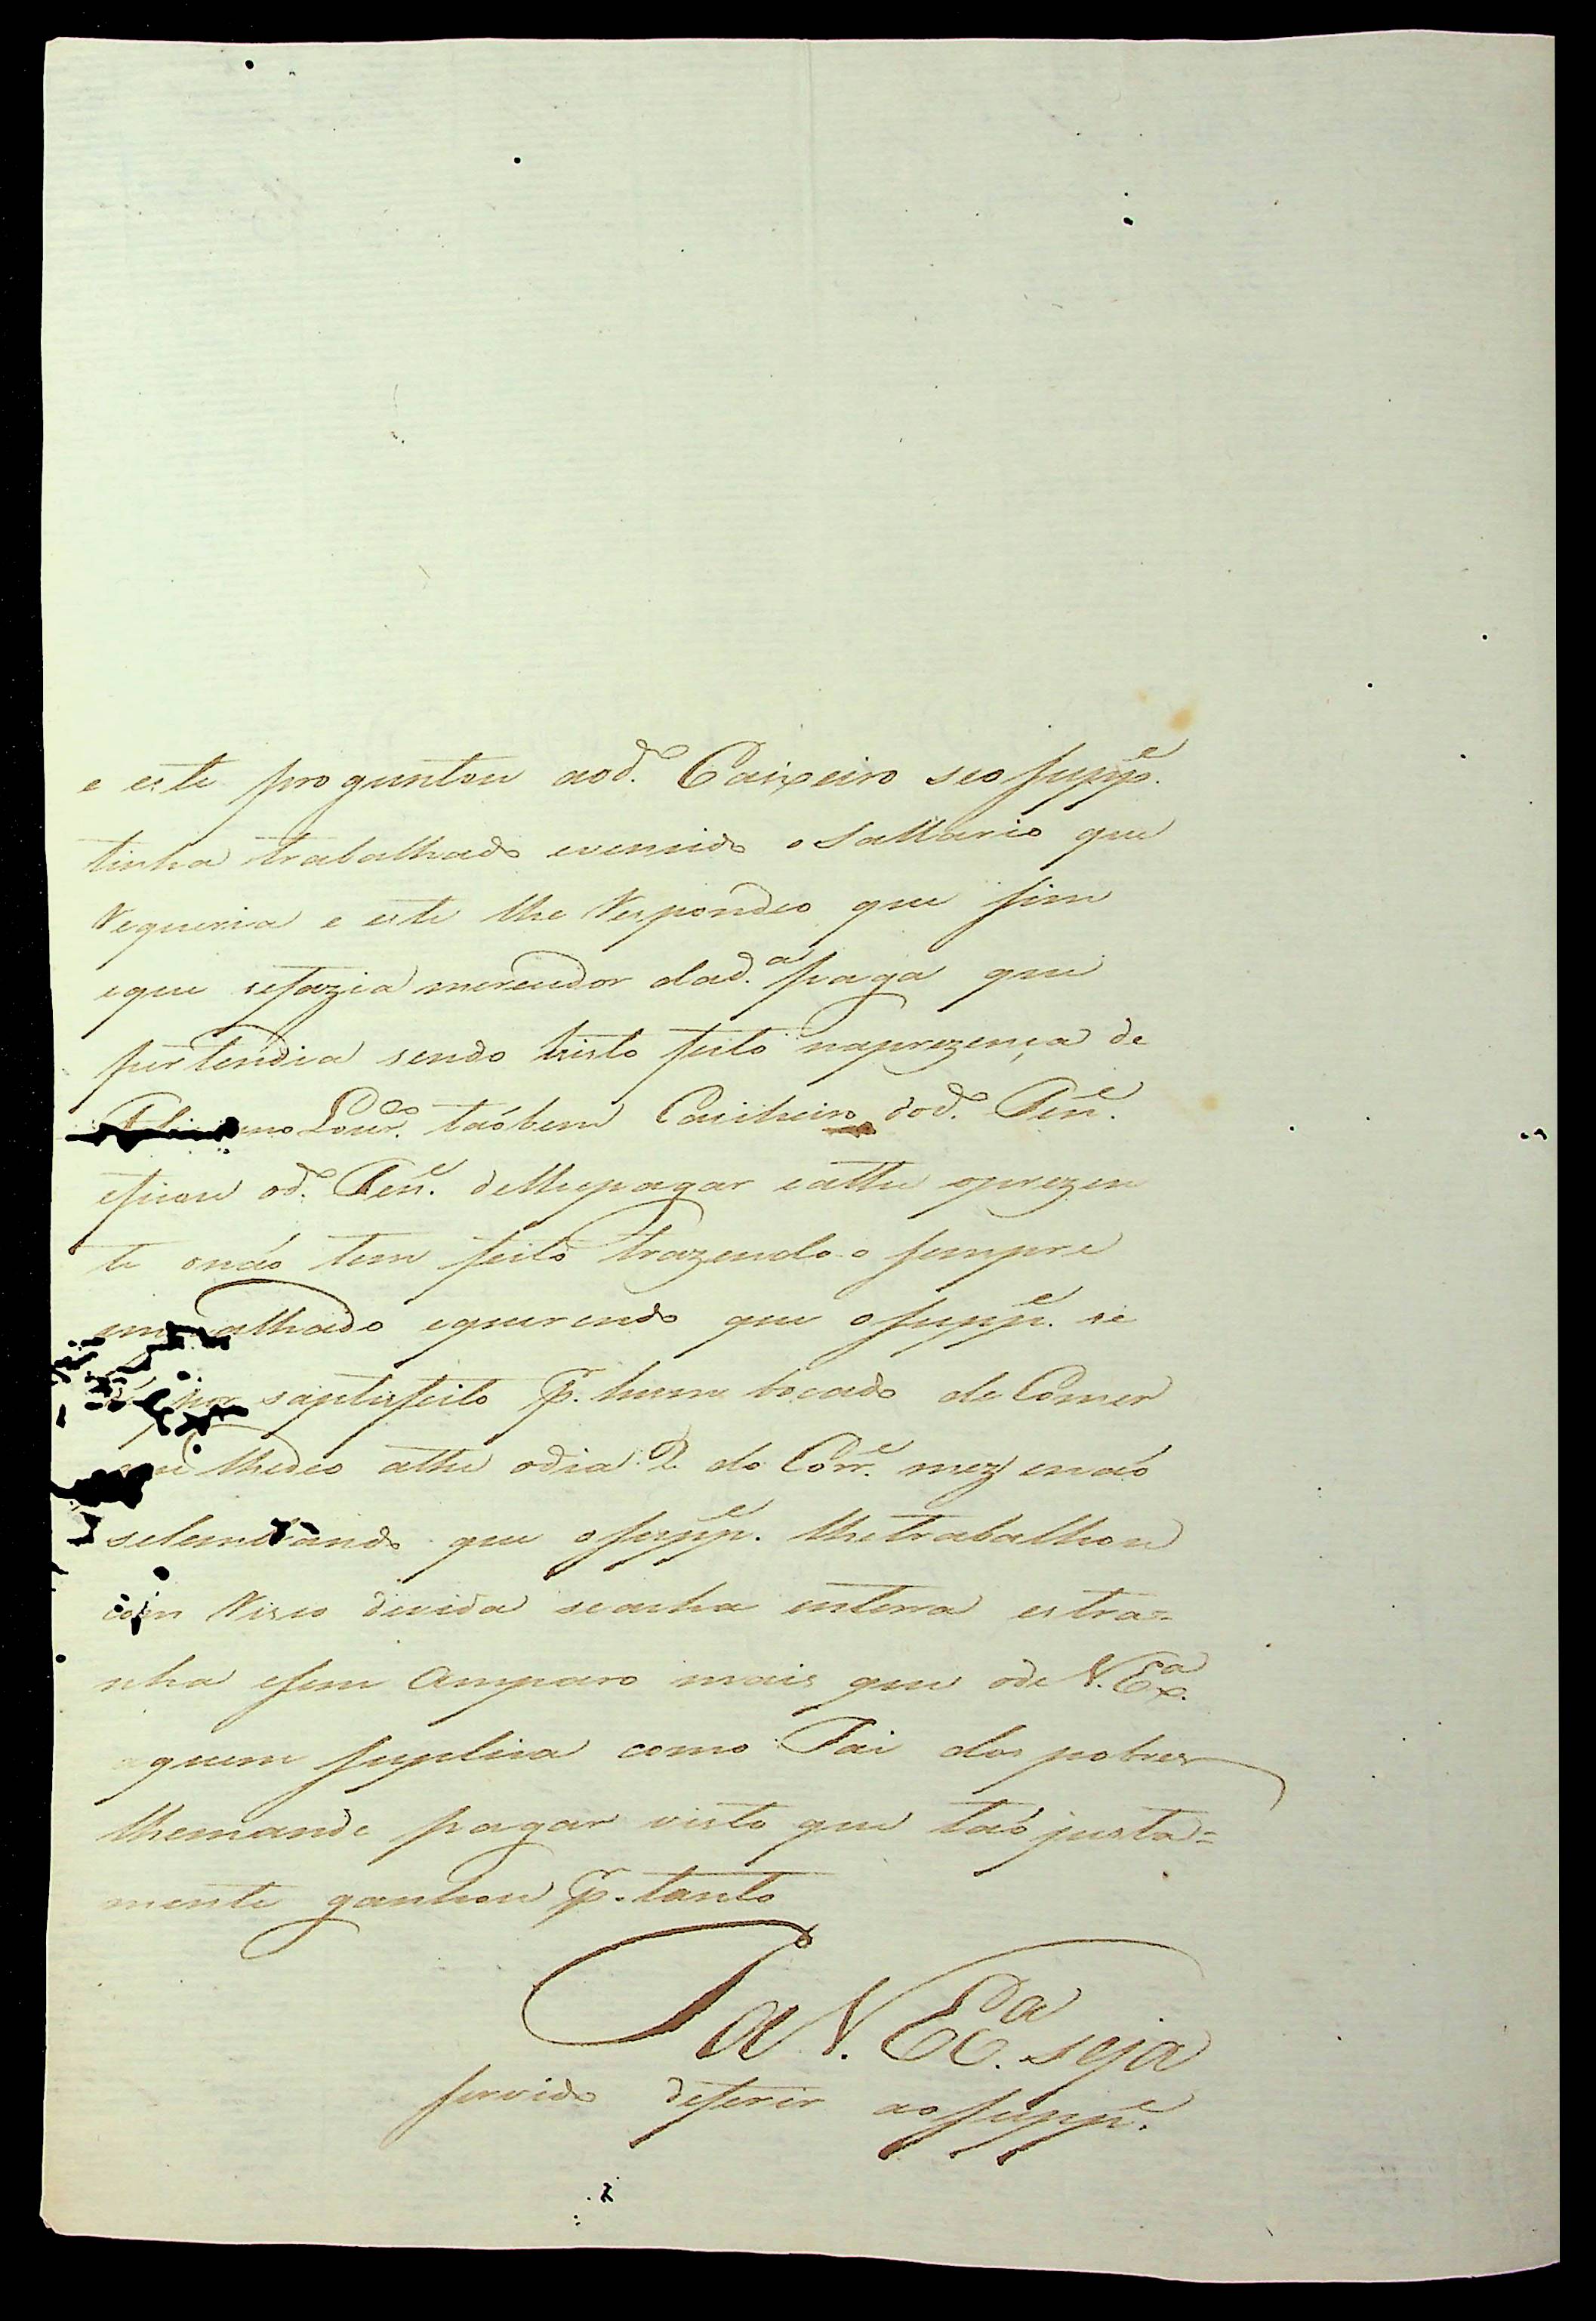 e este proguntou aod.º Caixeiro seo supp.e
tinha trabalhado evencido o Sallario que
Requeria e este lhe Respondeo que sim
eque sefazia merecedor dad.a paga que
pertendia sendo tuisto feito naprezença de
Lour.ço taóbem Caicheiro dod.º Ten.e
eficou od.º Ten.e delhepagar eathe oprezen
te onaó tem feito trazendo-o sempre
enganalhado equerendo que osupp.e se
dê por saptisfeito p.r hum bocado de Comer
que lhedeo athe odia 2 do Corr.e mez enaó
selembrando que osupp.e lhetrabalhou
com Risco devida seacha enterra estra=
nha esem Amparo mais que ode V. Ex.a
aquem suplica como Pai dos pobres
lhemande pagar visto que taó justa=
mente ganhou p.r tanto
P a V. Ex.a seja
servido deferir ao supp.e